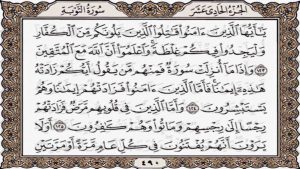 الجُزْءُ الحَادِي عَشَرَ سُورَةُ التَّوْبَةِ
يَٰٓأَيُّهَا ٱلَّذِينَ ءَامَنُوا۟ قَٰتِلُوا۟ ٱلَّذِينَ يَلُونَكُم مِّنَ ٱلْكُفَّارِ
وَلْيَجِدُوا۟ فِيكُمْ غِلْظَةً وَٱعْلَمُوٓا۟ أَنَّ ٱللَّهَ مَعَ ٱلْمُتَّقِينَ
١٢٣ وَإِذَا مَآ أُنزِلَتْ سُورَةٌ فَمِنْهُم مَّن يَقُولُ أَيُّكُمْ زَادَتْهُ
هَٰذِهِۦٓ إِيمَٰنًا فَأَمَّا ٱلَّذِينَ ءَامَنُوا۟ فَزَادَتْهُمْ إِيمَٰنًا وَهُمْ
يَسْتَبْشِرُونَ ١٢٤ وَأَمَّا ٱلَّذِينَ فِى قُلُوبِهِم مَّرَضٌ فَزَادَتْهُمْ
رِجْسًا إِلَىٰ رِجْسِهِمْ وَمَاتُوا۟ وَهُمْ كَٰفِرُونَ ١٢٥ أَوَلَا
يَرَوْنَ أَنَّهُمْ يُفْتَنُونَ فِى كُلِّ عَامٍ مَّرَّةً أَوْ مَرَّتَيْنِ
٤٩٠